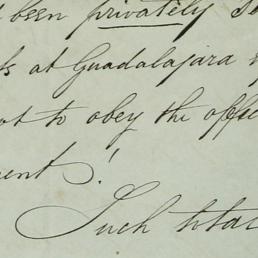 been privately
at Guadalajara
to obey the offi
ent!
Such tota